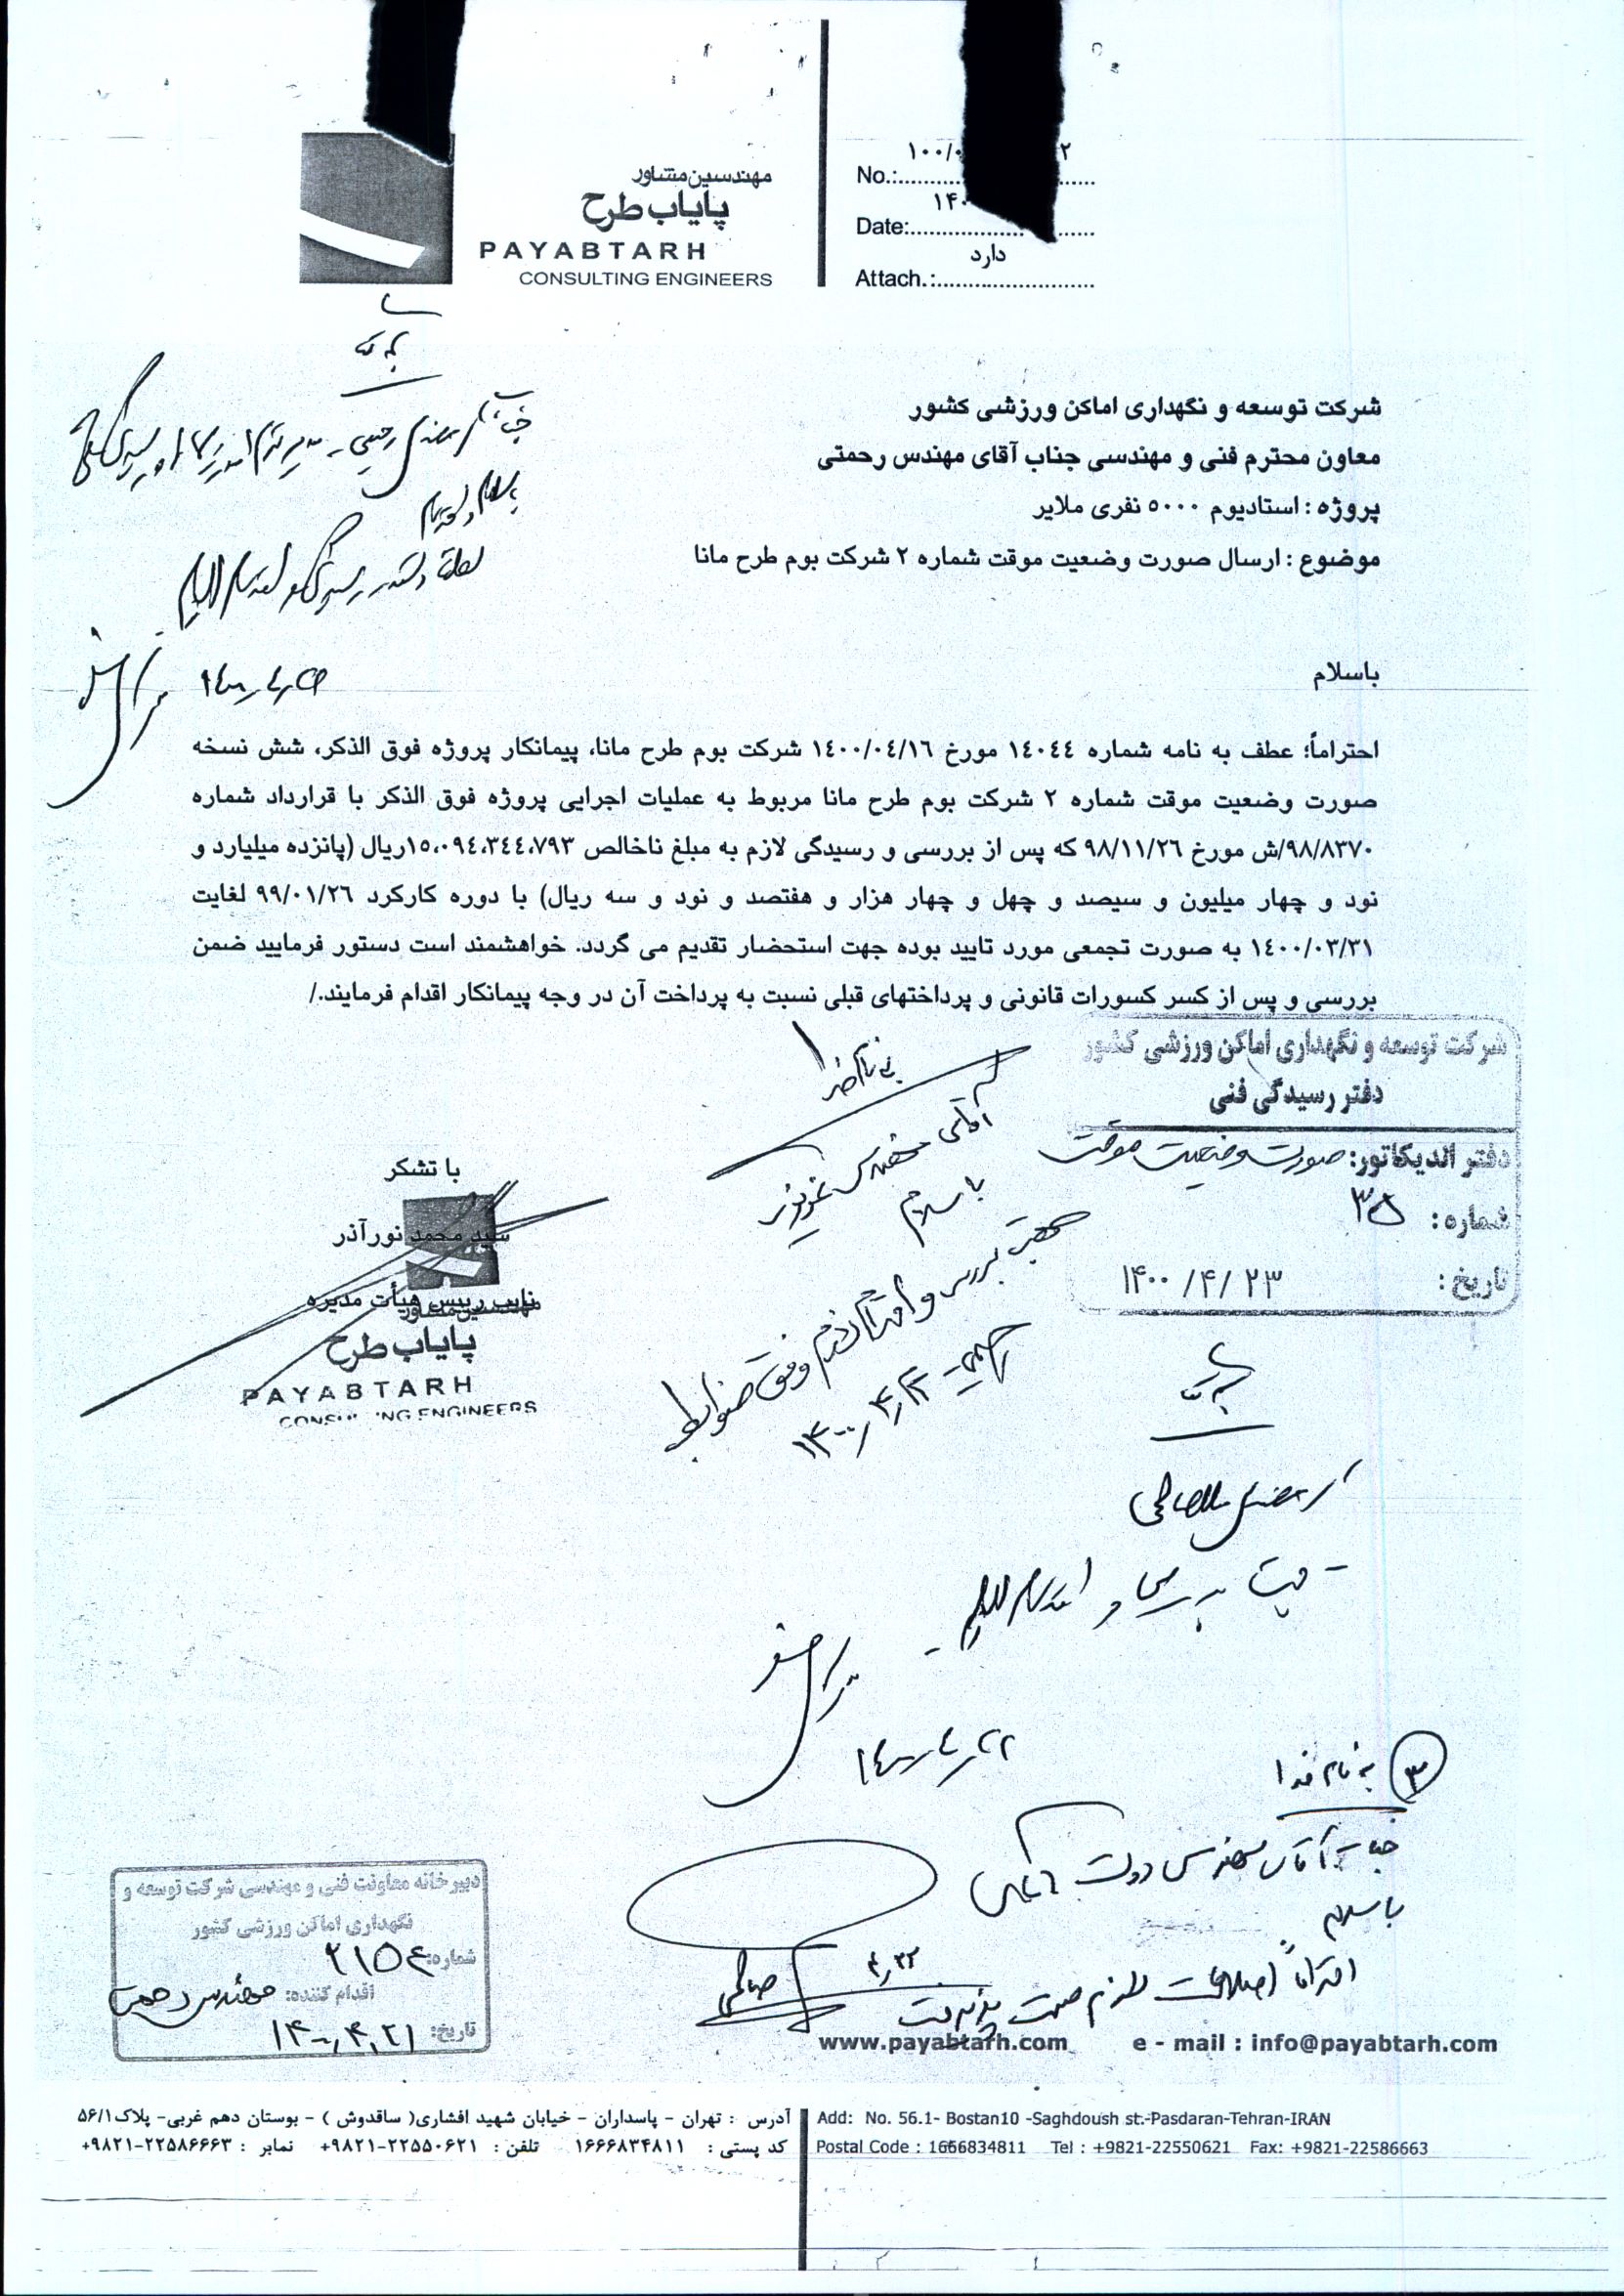 مهندسین مشاور
پایاب طرح
PAYABTARH
CONSULTING ENGINEERS
No.:
Date:
دارد
Attach.:
شرکت توسعه و نگهداری اماکن ورزشی کشور
معاون محترم فنی و مهندسی جناب آقای مهندس رحمتی
پروژه : استادیوم ۵۰۰۰ نفری ملایر
موضوع : ارسال صورت وضعیت موقت شماره ۲ شرکت بوم طرح مانا
باسلام
احتراماً؛ عطف به نامه شماره ١٤٠٤٤ مورخ ١٤٠٠/٠٤/١٦ شرکت بوم طرح مانا، پیمانکار پروژه فوق الذکر، شش نسخه
صورت وضعیت موقت شماره ۲ شرکت بوم طرح مانا مربوط به عملیات اجرایی پروژه فوق الذکر با قرارداد شماره
۹۸/۸۳۷۰/ش مورخ ۹۸/۱۱/۲٦ که پس از بررسی و رسیدگی لازم به مبلغ ناخالص ١٥،٠٩٤،٣٤٤،٧٩٣ریال (پانزده میلیارد و
نود و چهار میلیون و سیصد و چهل و چهار هزار و هفتصد و نود و سه ریال) با دوره کارکرد ۹۹/۰۱/۲٦ لغایت
١٤٠٠/٠٣/٣١ به صورت تجمعی مورد تایید بوده جهت استحضار تقدیم می گردد. خواهشمند است دستور فرمایید ضمن
بررسی و پس از کسر کسورات قانونی و پرداختهای قبلی نسبت به پرداخت آن در وجه پیمانکار اقدام فرمایند./
شرکت توسعه و نگهداری اماکن ورزشی کشور
دفتر رسیدگی فنی
دفتر اندیکاتور: صورت وضعیت موقت
شماره: ۳۵
تاریخ: ۱۴۰۰/۴/۲۳
بنام خدا
آقای مهندس
باسلام
جهت بررسی و اقدام لازم وفق ضوابط
۱۴۰۰/۴/۲۳
با تشکر
سید محمد نورآذر
نایب رییس هیأت مدیره
مهندسین مشاور
پایاب طرح
PAYABTARH
CONSULTING ENGINEERS
۱۴۰۰/۴/۲۲
۳ به نام خدا
جناب آقای مهندس دولت
باسلام
احتراماً اصلاحات لازم صورت پذیرفت
۴/۲۳
دبیرخانه معاونت فنی و مهندسی شرکت توسعه و
نگهداری اماکن ورزشی کشور
شماره: ۲۱۵۴
اقدام کننده: مهندس رحمتی
تاریخ: ۱۴۰۰/۴/۲۱
www.payabtarh.com e - mail : info@payabtarh.com
آدرس : تهران - پاسداران - خیابان شهید افشاری( ساقدوش ) - بوستان دهم غربی- پلاک۵۶/۱
کد پستی : ۱۶۶۶۸۳۴۸۱۱ تلفن : ۲۲۵۵۰۶۲۱-۹۸۲۱+ نمابر : ۲۲۵۸۶۶۶۳-۹۸۲۱+
Add: No. 56.1- Bostan10 -Saghdoush st.-Pasdaran-Tehran-IRAN
Postal Code : 1666834811 Tel : +9821-22550621 Fax: +9821-22586663